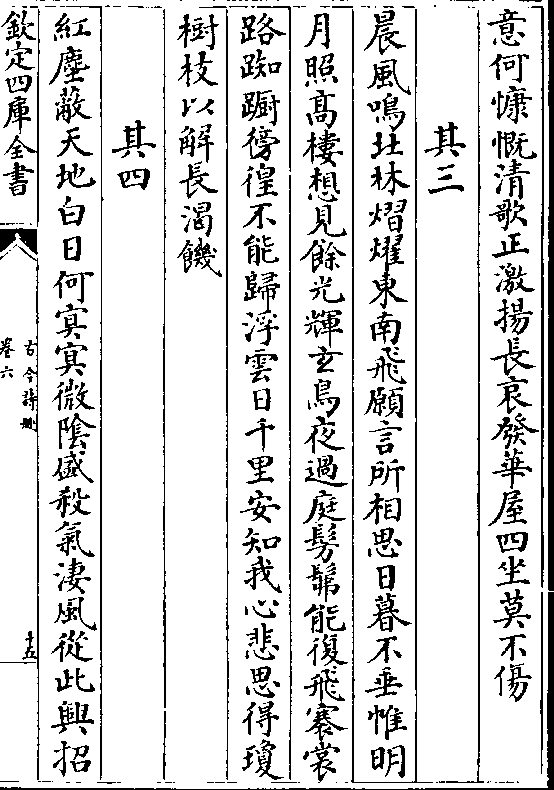 意何慷慨清歌正激揚長哀發華屋四坐莫不傷
其三
晨風鳴北林熠燿東南飛願言所相思日暮不垂帷明
月照高樓想見餘光輝玄鳥夜過庭髣髴能復飛褰裳
路踟躕彷徨不能歸浮雲日千里安知我心悲思得瓊
樹枝以解長渴饑
其四
紅塵蔽天地白日何㝠㝠微陰盛殺氣淒風從此興招
欽定四庫全書
古今詩刪
卷六
十五